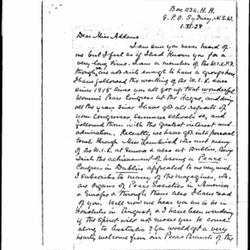 Box 1134. H. H.
G. P. O. Sydney. N. S. W.
1. XI. 28
Dear Miss Addams
I am sure you have heard of
me but I feel as if I had known you for a
very long time. I am a member of the W.I.L.P.F.
though, we are not rich enough to have a group here
I have followed the working of the W.I.L. ever
since 1915 when you all got up that wonderful
Women's Peace Congress at the Hague, and
all the years since I have got all reports of
your Congresses, Summer schools etc, and
followed them with the greatest interest and
admiration. Recently we have got into personal
touch through Miss and met many
of the W.I.L. at Geneva & also at Dublin.
the achievement of having a Peace
Congress in Dublin appealed to us
I subscribe to many of the magazines, which
are organs of Peace Societies in America
& England & through them also I have heard
of you. Will now we hear you are to be in
Honolulu in August & I have been wondering
if the Spirit will not move you to come
along to Australia? You would get a very
hearty welcome from our Peace Friends of the